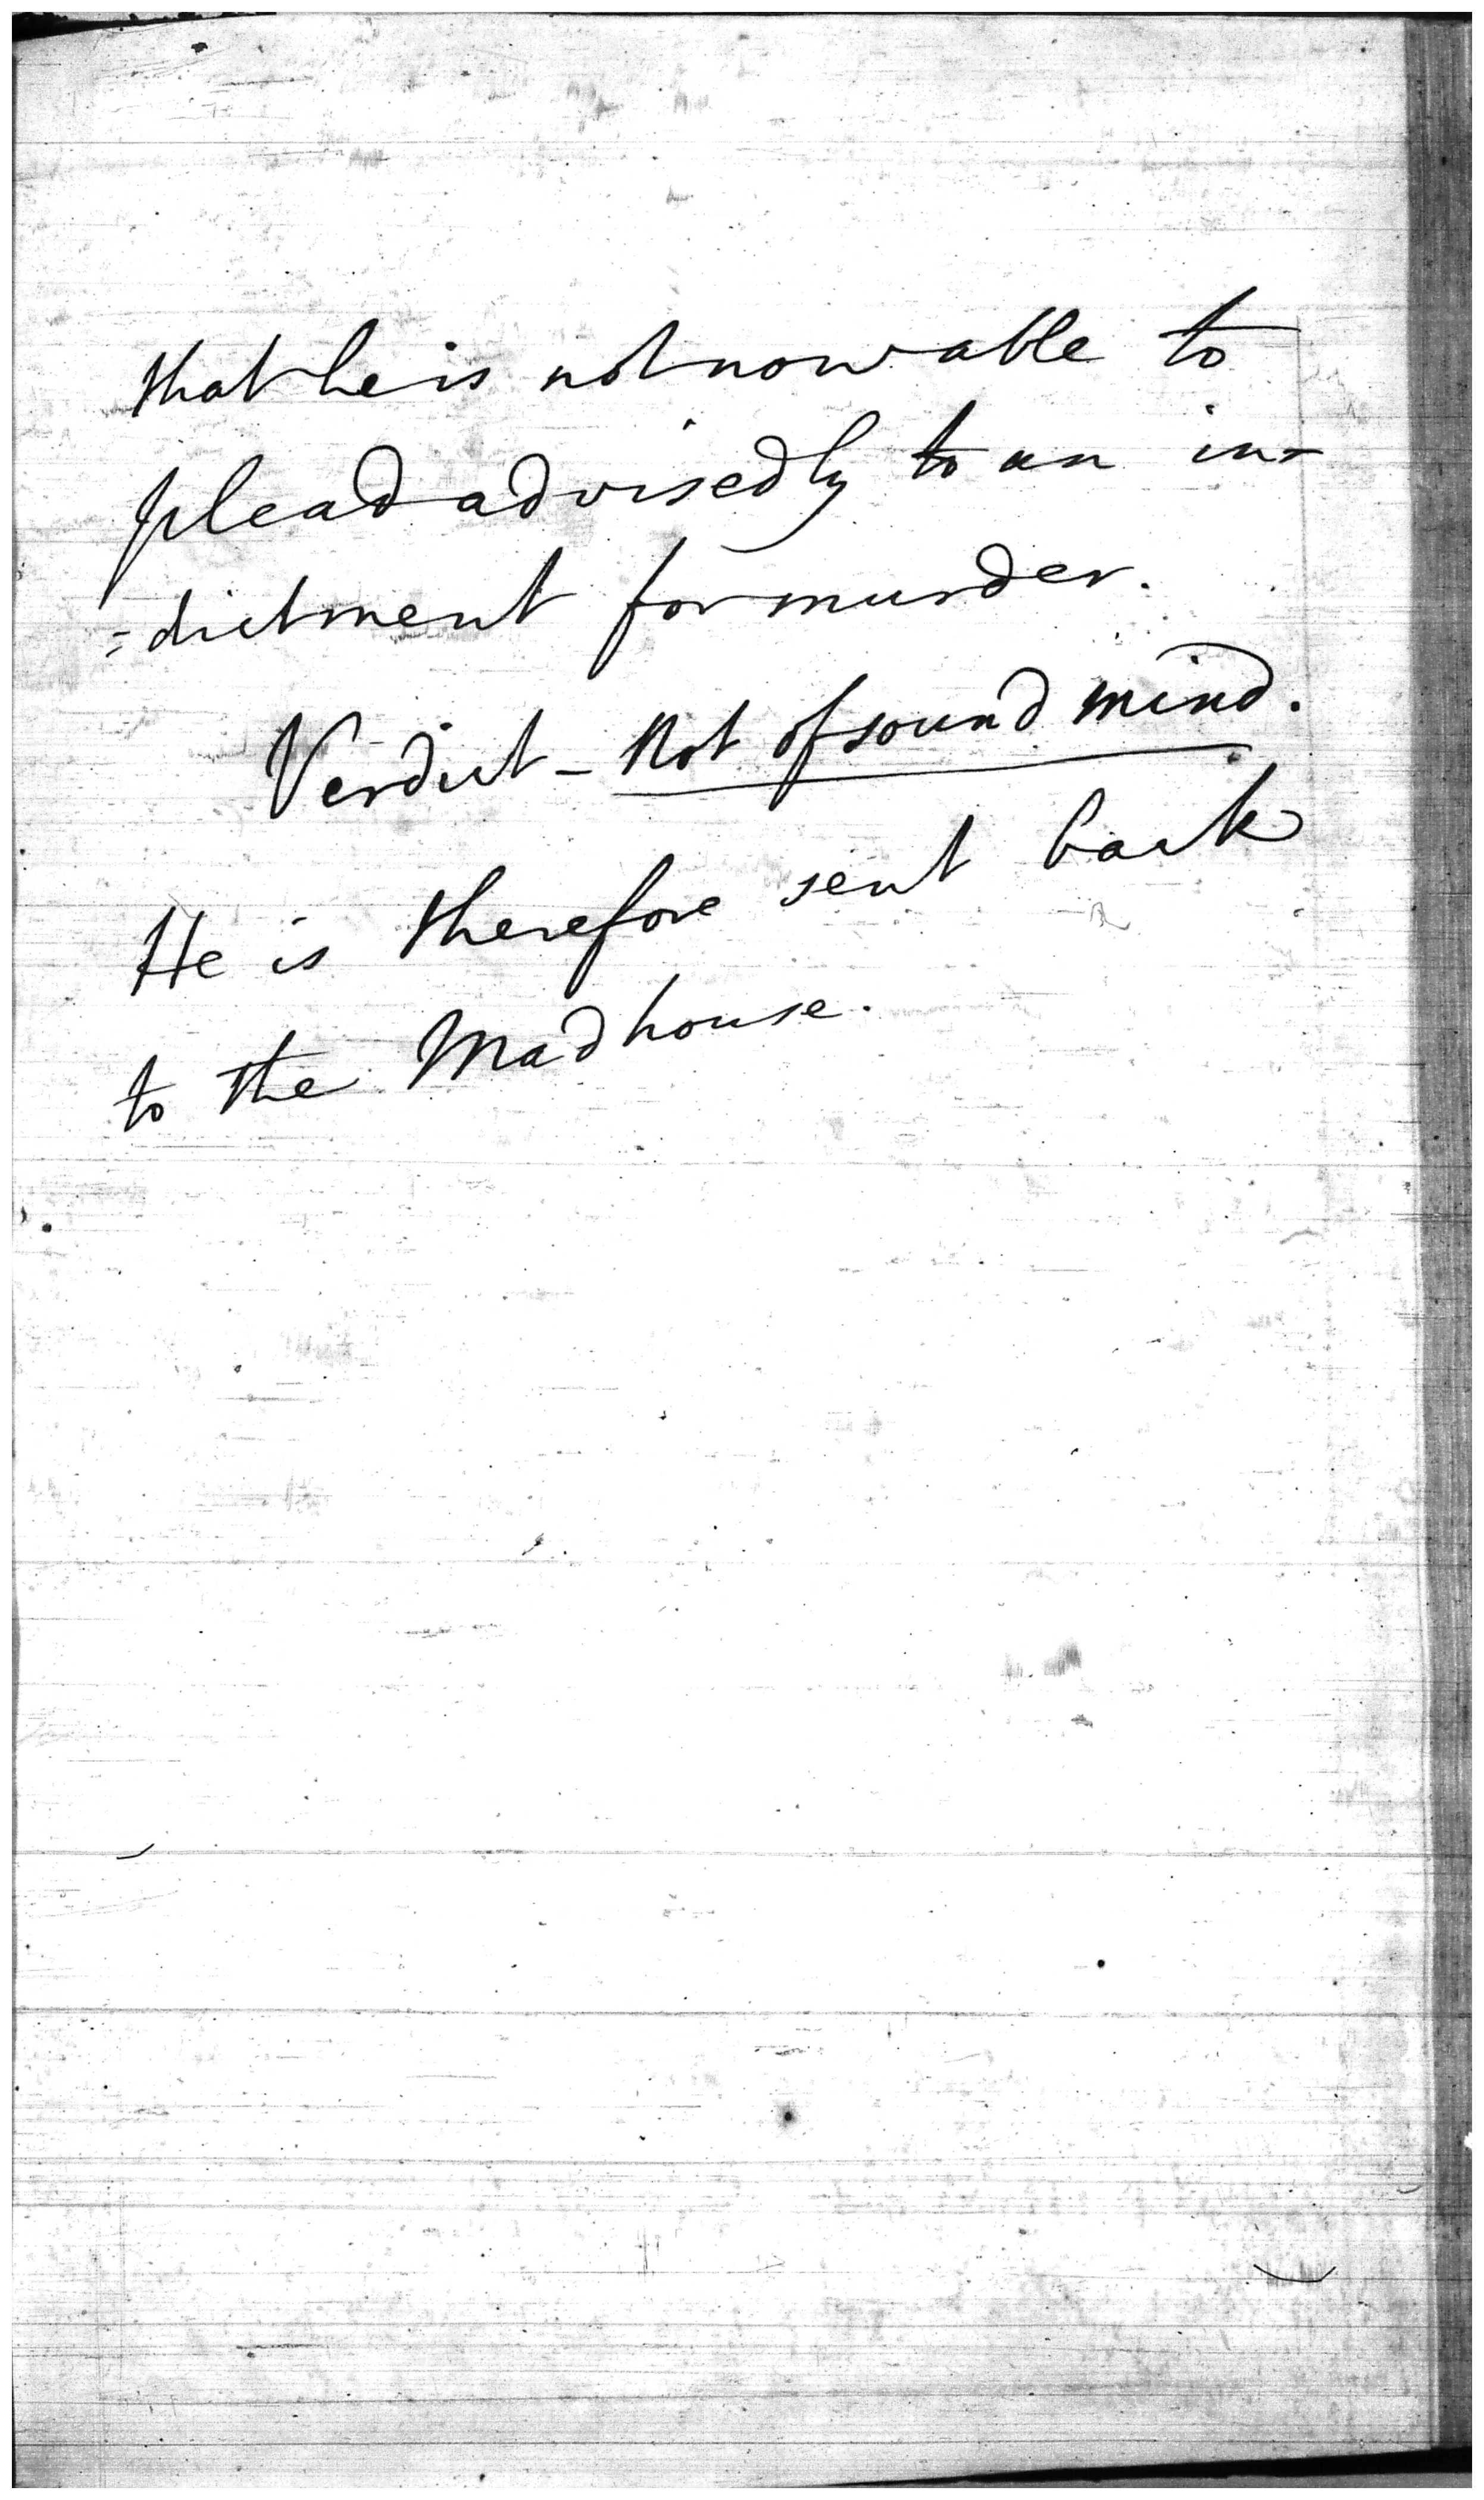 that he is not now able to
plead advisedly to an in=
=dictment for murder.
Verdict - Not of sound mind.
He is therefore sent back
to the Madhouse.